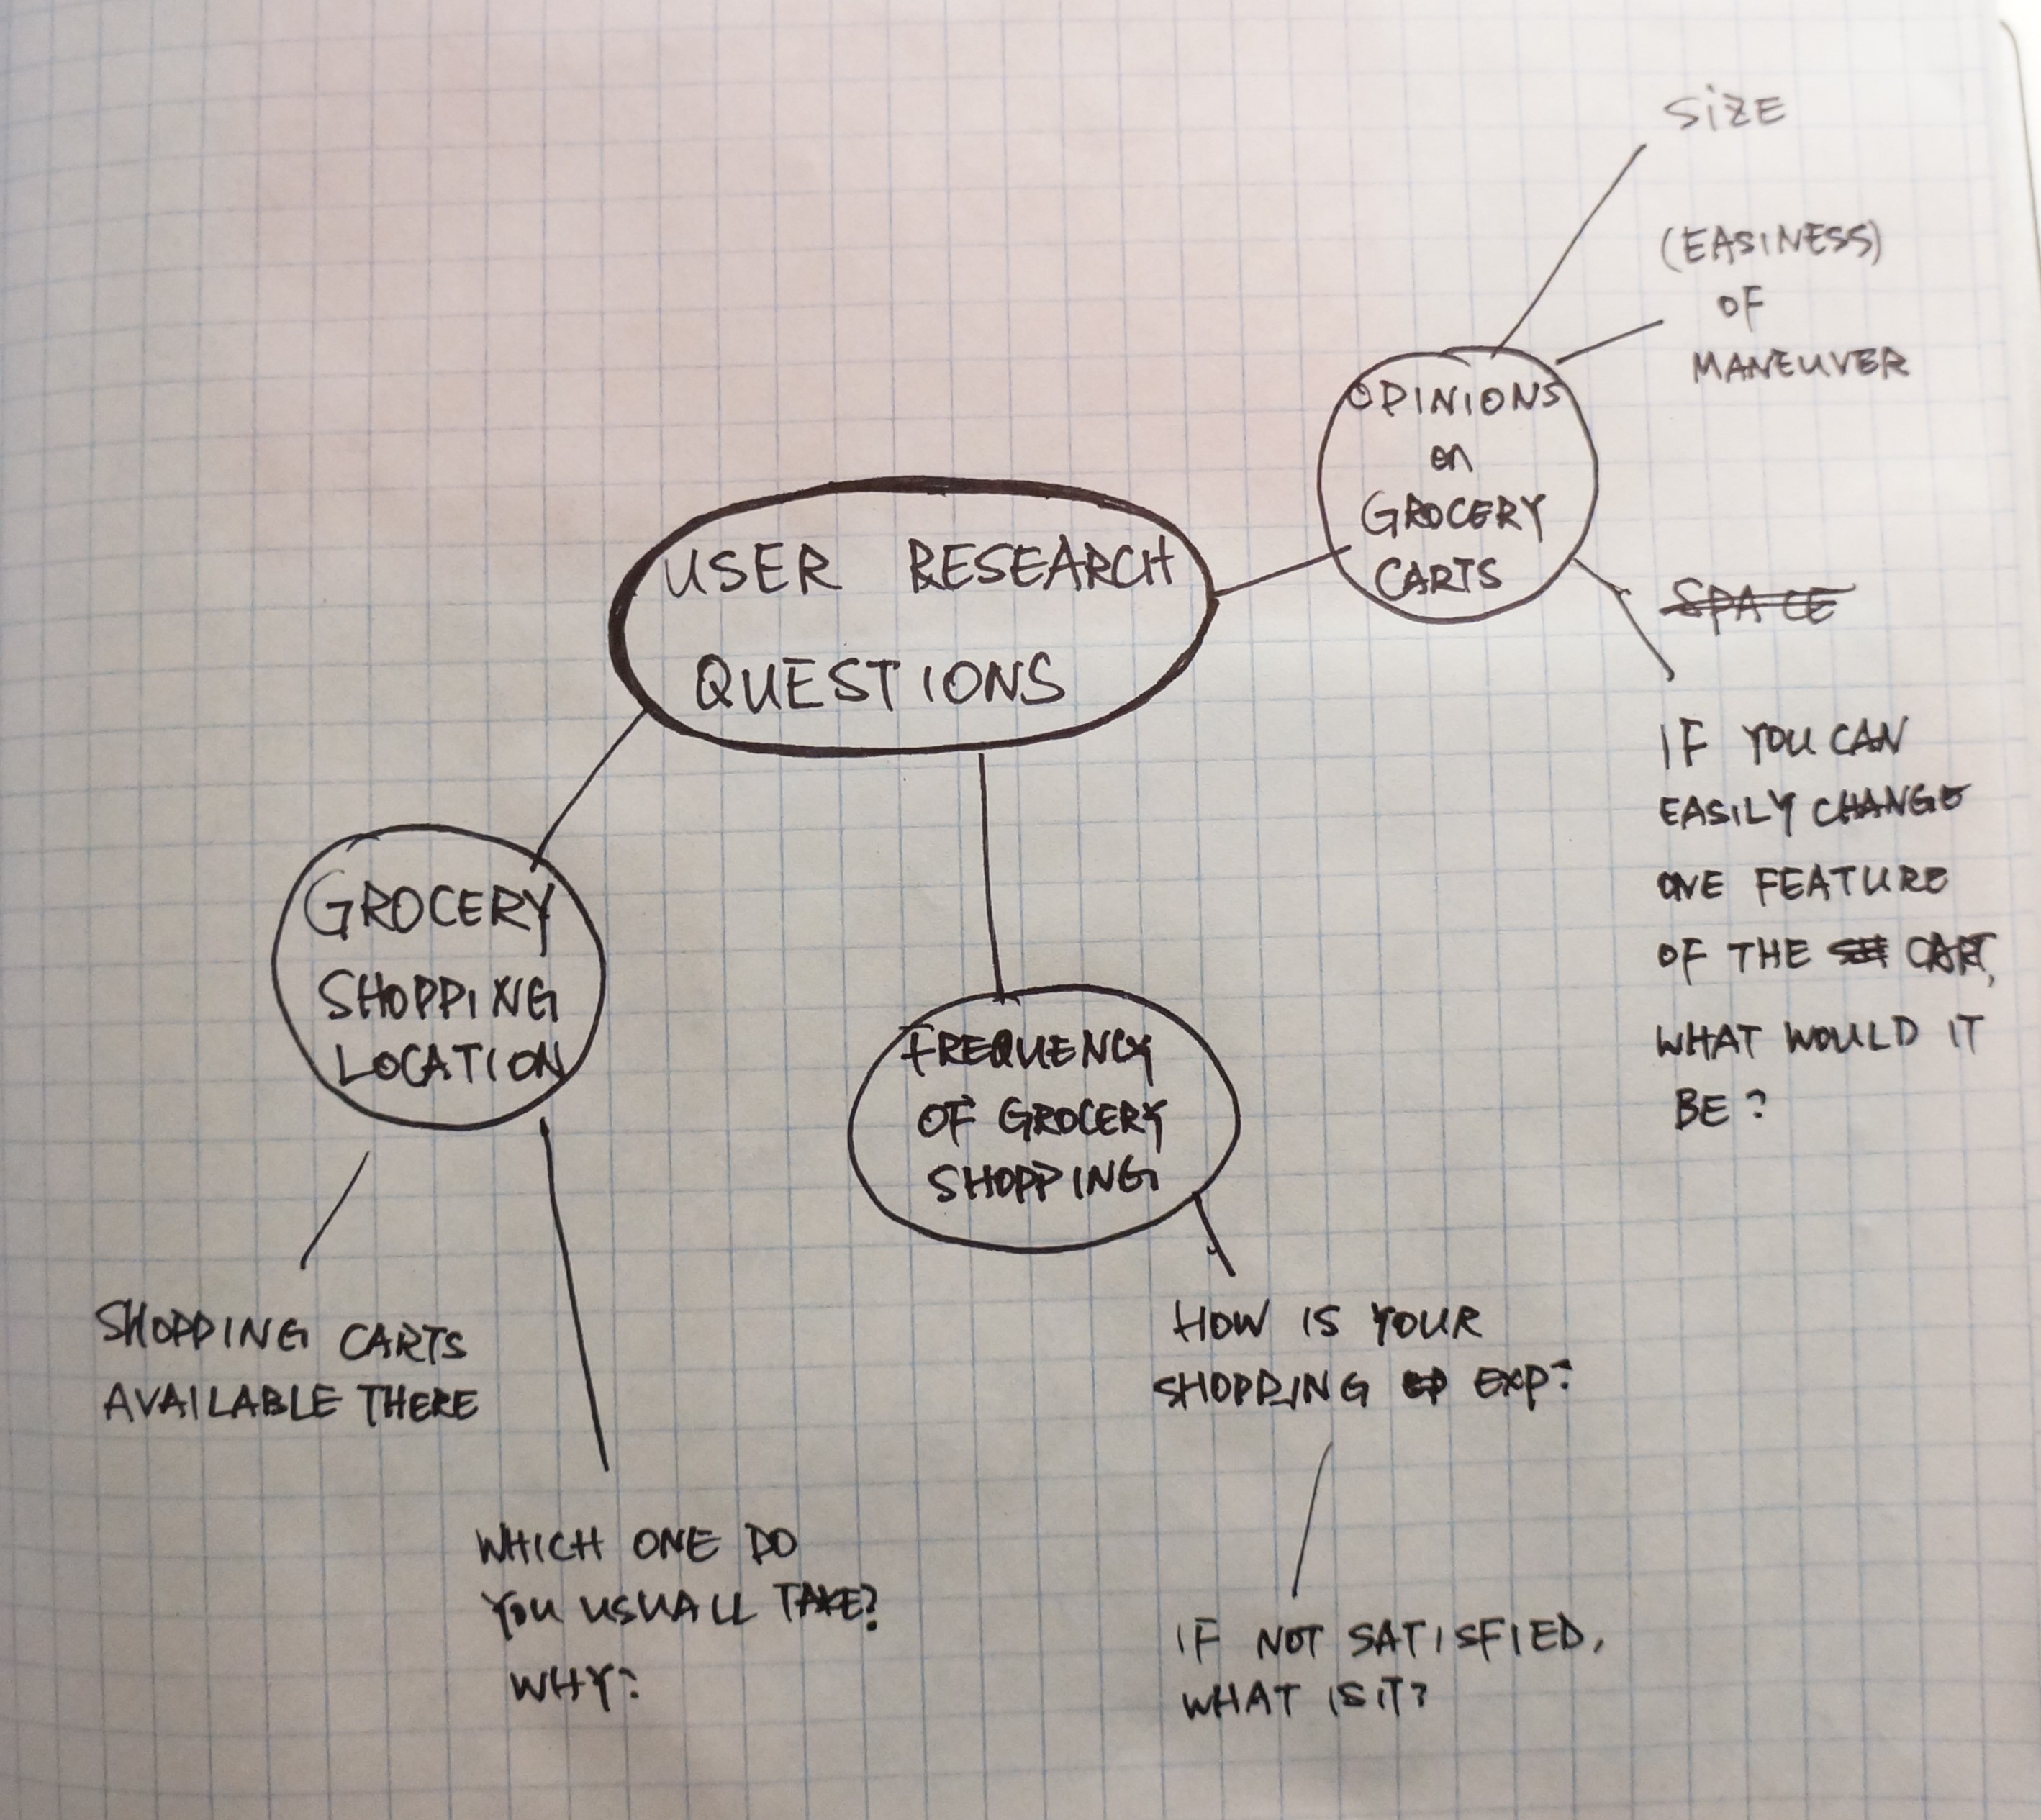 USER RESEARCH
QUESTIONS
OPINIONS
on
GROCERY
CARTS
SiZE
(EASINESS)
OF
MANEUVER
SPACE
IF YOU CAN
EASILY CHANGE
ONE FEATURE
OF THE CART,
WHAT WOULD IT
BE?
GROCERY
SHOPPING
LOCATION
SHOPPING CARTS
AVAILABLE THERE
WHICH ONE DO
YOU USUALL TAKE?
WHY?
FREQUENCY
OF GROCERY
SHOPPING
HOW IS YOUR
SHOPPING EXP?
IF NOT SATISFIED,
WHAT IS IT?